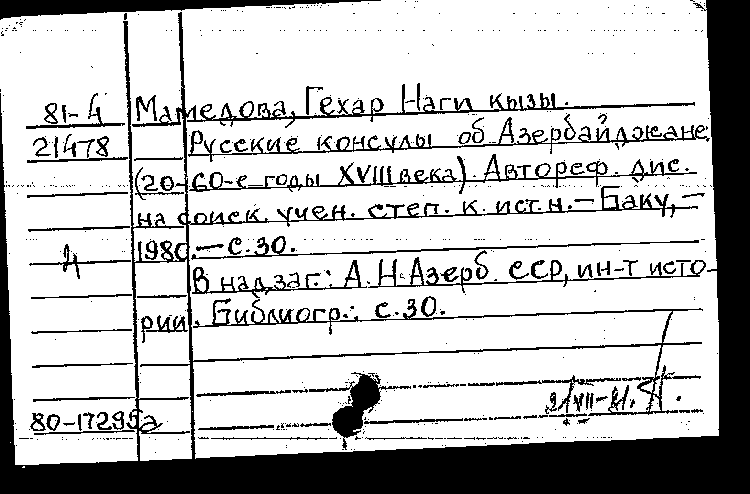 81-4 Мамедова, Гехар Наги кызы.
21478 Русские консулы об Азербайджане
(20-60-е годы XVIII века). Автореф. дис.
на соиск. учен. степ. к. ист. н. — Баку, —
4 1980. — с. 30.
В надзаг.: А. Н. Азерб. ССР, ин-т исто-
рии. Библиогр.: с. 30.
80-17295а